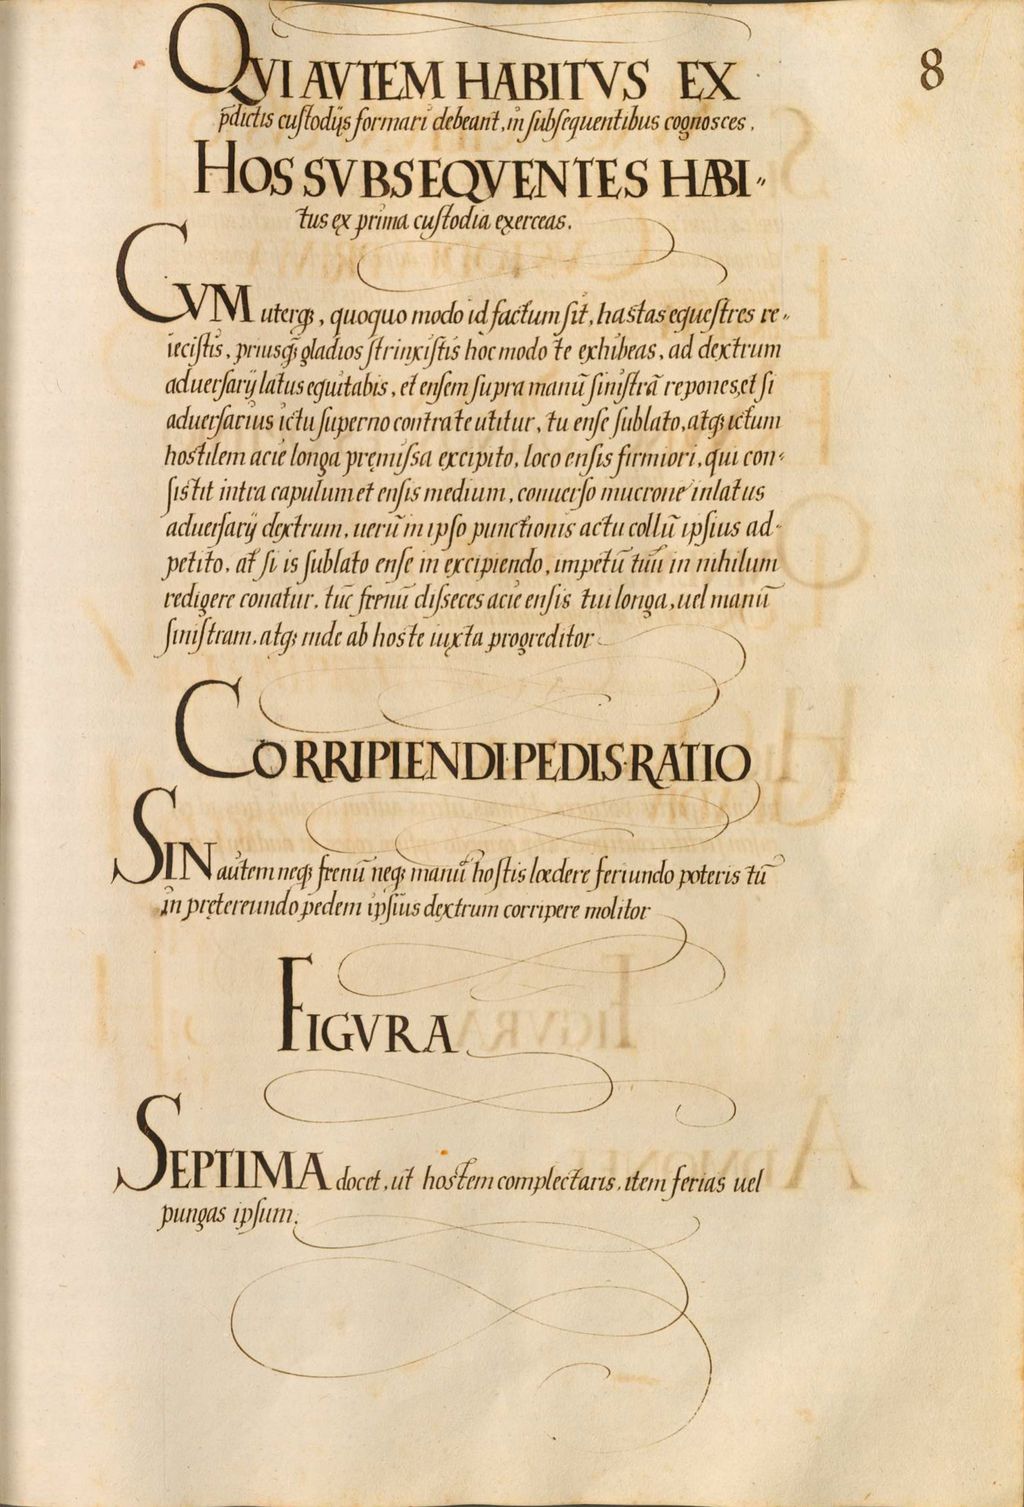 8
QVI AVTEM HABITVS EX
p̄dictis cuſtodijs formari debeant, in ſubſequentibus cognosces.
HOS SVBSEQVENTES HABI„
tus ex prima cuſtodia exerceas.
CVM uterq;, quoquo modo id factum ſit, hastas equeſtres re„
iecistis, priusq̃ gladios ſtrinxiſtis hoc modo te exhibeas, ad dextrum
aduerſarij latus equitabis, et enſem ſupra manū ſiniſtrā repones, et ſi
aduerſarius ictu ſuperno contra te utitur, tu enſe ſublato, atq; ictum
hostilem acie longa pręmiſſa excipito, loco enſis firmiori, qui con„
ſistit intra capulum et enſis medium, conuerſo mucrone in latus
aduerſarij dextrum, uerū in ipſo punctionis actu collū ipſius ad„
petito, at ſi is ſublato enſe in excipiendo, impetū tuū in nihilum
redigere conatur, tūc frenū diſseces acie enſis tui longa, uel manū
ſiniſtram, atq; inde ab hoste iuxta progreditor
CORRIPIENDI·PEDIS·RATIO
SIN autem neq; frenū neq; manū hoſtis lœdere feriundo poteris tū
in prętereundo pedem ipſius dextrum corripere molitor
FIGVRA
SEPTIMA docet, ut hostem complectaris, item ferias uel
pungas ipſum.